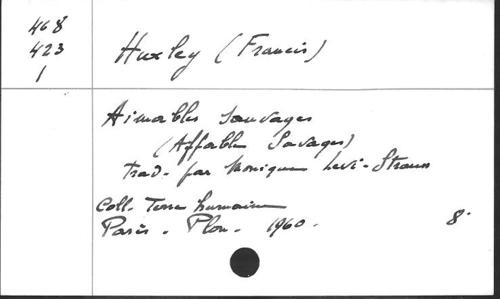 468
423
1
Huxley (Francis)
Aimables sauvages
(Affable Savages)
Trad. par Monique Levi-Strauss
Coll. Terre humaine
Paris. Plon. 1960. 8°